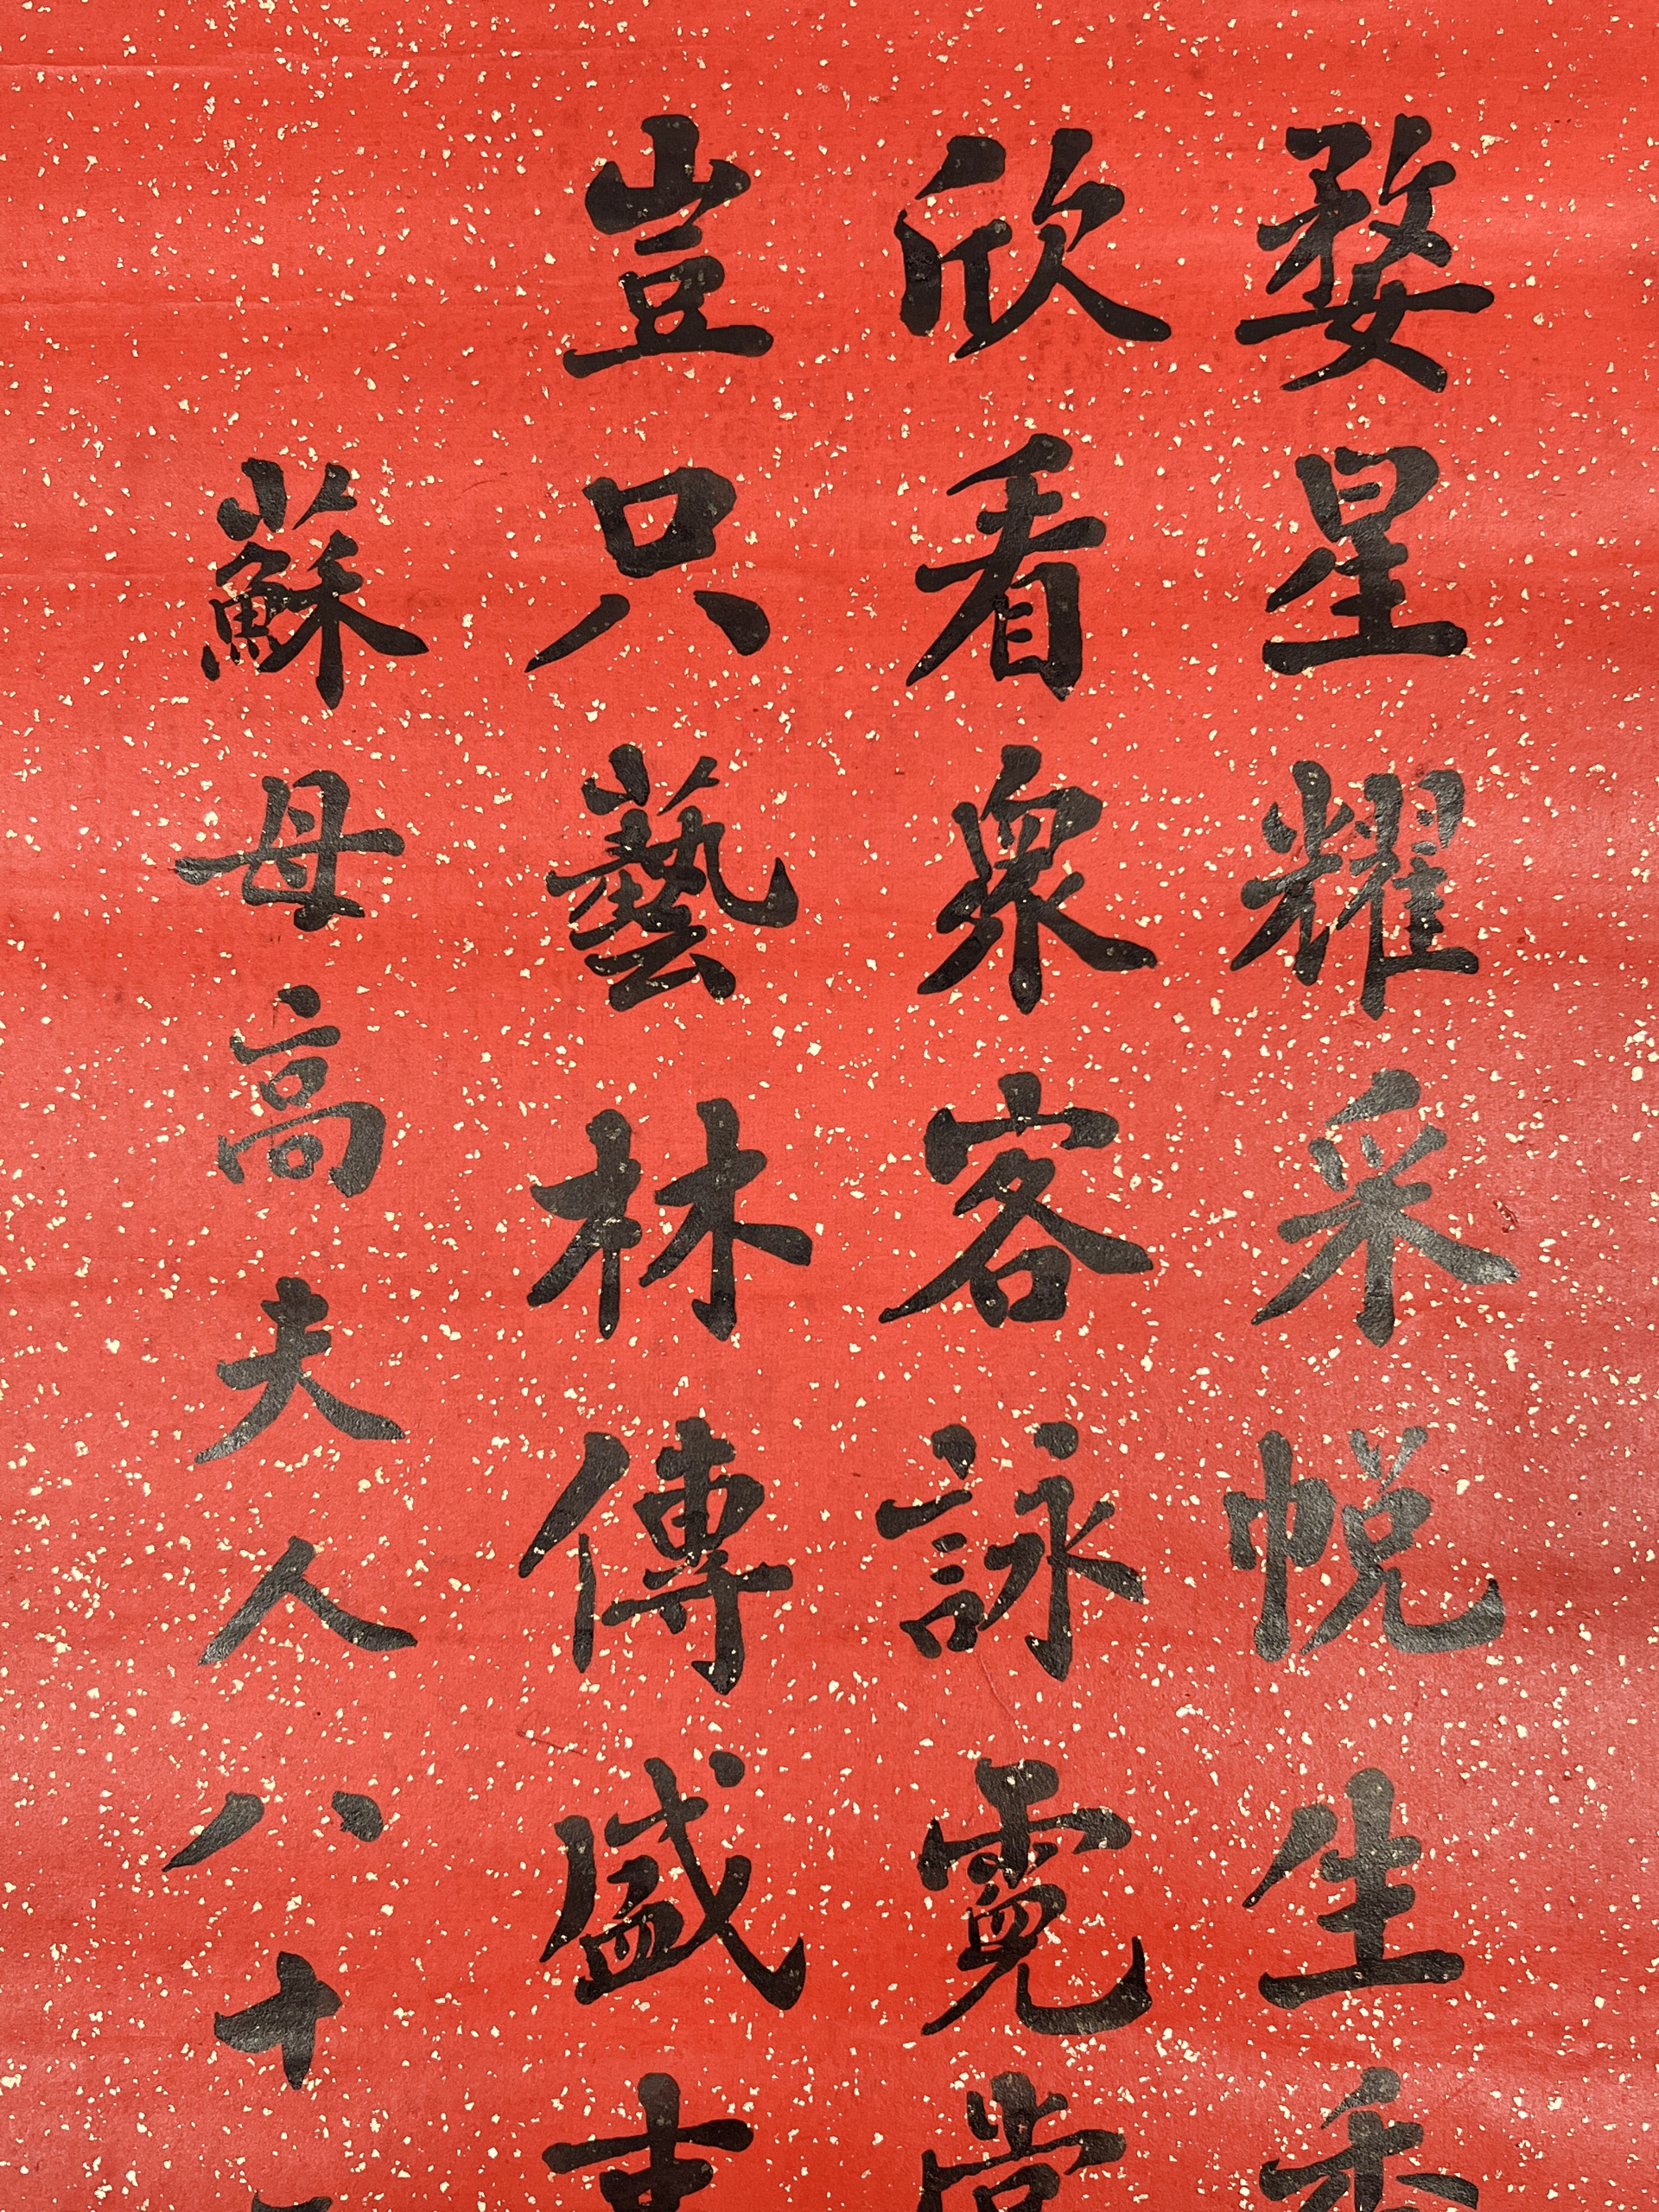 婺星耀采帨生香
欣看衆客詠霓裳
豈只藝林傳盛
蘇母高夫人八十